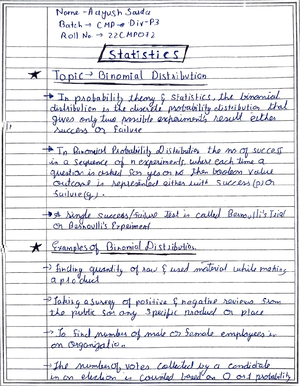 Name - Aayush Saida
Batch → CMP Div-P3
Roll No → 22CMP072
Statistics
★ Topic → Binomial Distribution
→ In probability theory & statistics, the binomial
distribution is the discrete probability distribution that
gives only two possible experiments result either
success or Failure
→ In Binomial Probability Distribution the no of success
in a sequence of n experiments, where each time a
question is asked for yes or no then boolean value
outcome is represented either with success (p) or
failure (q).
→ A single success/failure Test is called Bernoulli's Trial
or Bernoulli's Experiment
★ Examples of Binomial Distribution
→ Finding quantity of raw & used material while making
a product
→ Taking a survey of positive & negative reviews from
the public for any specific product or place
→ To Find number of male or Female employees in
an organization
→ The number of votes collected by a candidate
in an election is counted based on 0 or 1 probability